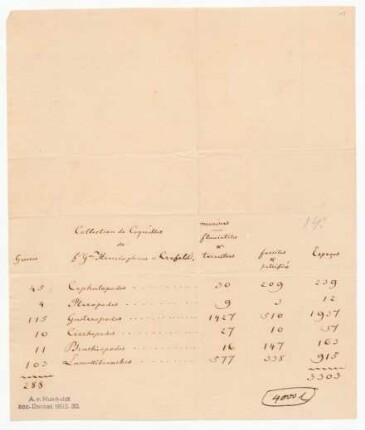 Collection de Coquilles
de
Genres
marines
fluviatiles
&
terrestres
fossiles
&
pétrifiés
Espèces
45 Cephalopodes 30 209 239
4 Pteropodes 9 3 12
115 Gasteropodes 1427 510 1937
10 Cirrhopodes 27 10 37
11 Brachiopodes 16 147 163
103 Lamellibranches 577 338 915
288 3303
A. v. Humboldt